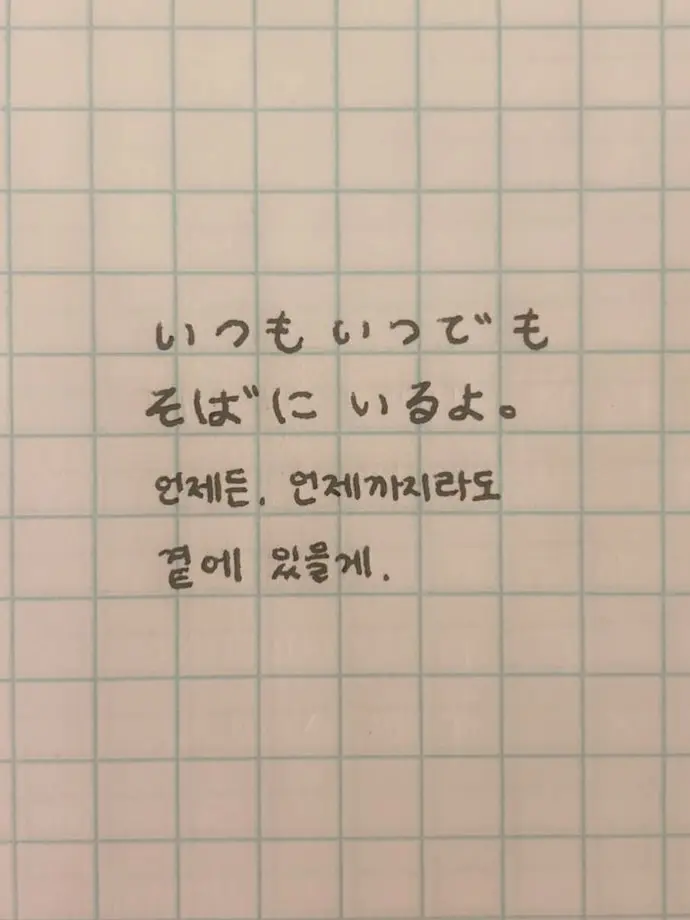 いつも いつでも
そばに いるよ。
언제든. 언제까지라도
곁에 있을게.